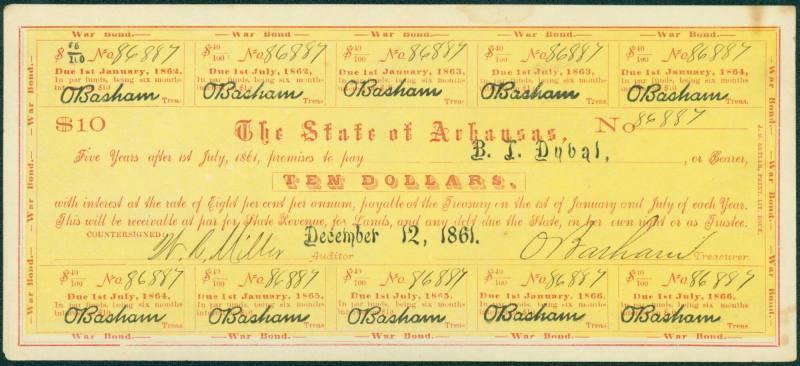 War Bond. War Bond. War Bond. War Bond. War Bond.
$ 40/100 No. 86887 $ 40/100 No. 86887 $ 40/100 No. 86887 $ 40/100 No. 86887
Due 1st January, 1862. Due 1st July, 1862, Due 1st January, 1863, Due 1st July, 1863, Due 1st January, 1864,
In par funds, being six months In par funds, being six months In par funds, being six months In par funds, being six months In par funds, being six months
O Basham Treas. O Basham Treas. O Basham Treas. O Basham Treas. O Basham Treas.
$10 The State of Arkansas, No 86887
Five Years after 1st July, 1861, promises to pay B. T. Duval, or Bearer,
TEN DOLLARS,
with interest at the rate of Eight per cent per annum, payable at the Treasury on the 1st of January and July of each Year.
This will be receivable at par for State Revenue, for Lands, and any debt due the State, in her own right or as Trustee.
COUNTERSIGNED: W. R. Miller Auditor December 12, 1861. O Basham Treasurer
$ 40/100 No. 86887 $ 40/100 No. 86887 $ 40/100 No. 86887 $ 40/100 No. 86887 $ 40/100 No. 86887
Due 1st July, 1864, Due 1st January, 1865. Due 1st July, 1865. Due 1st January, 1866, Due 1st July, 1866,
In par funds, being six months In par funds, being six months In par funds, being six months In par funds, being six months In par funds, being six months
O Basham Treas O Basham Treas O Basham Treas O Basham Treas O Basham Treas
War Bond. War Bond. War Bond. War Bond. War Bond.
—War Bond.—War Bond.—War Bond.—
—War Bond.—War Bond.—War Bond.—